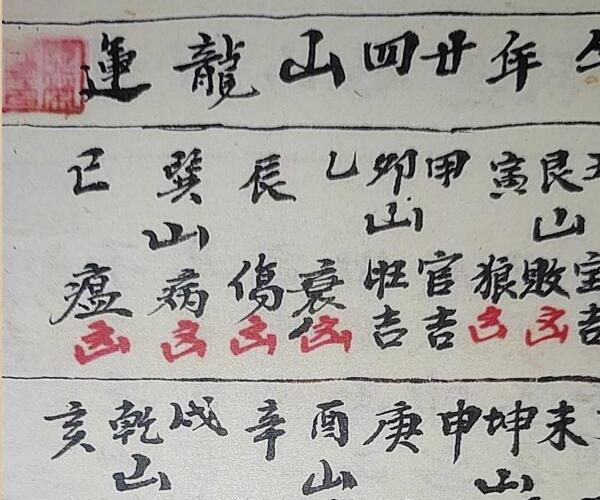 年廿四山龍運
艮山敗凶
寅狼凶
甲官吉
卯山旺吉
乙衰凶
辰傷凶
巽山病凶
巳瘟凶
未
坤山
申
庚
酉山
辛
戌
乾山
亥